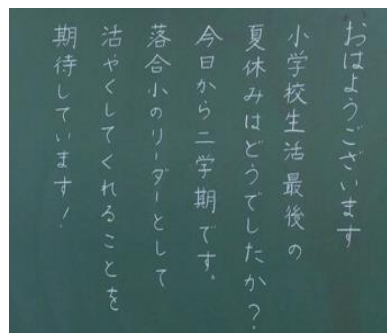 おはようございます
小学校生活最後の
夏休みはどうでしたか？
今日から二学期です。
落合小のリーダーとして
活やくしてくれることを
期待しています！